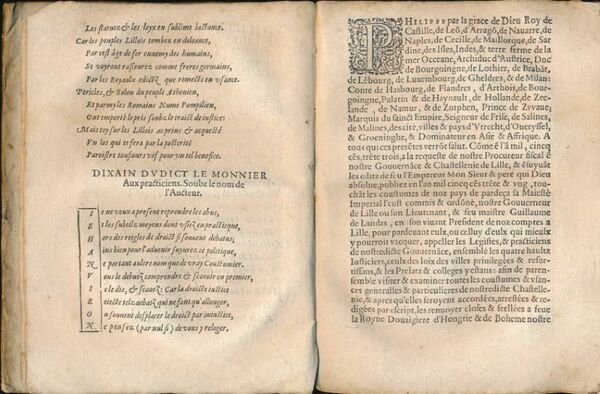 Les statutz & les loyx en sublime iactance.
Car les peuples Lillois tombez en doleance,
Par cest âge de fer ennemy des humains,
Se voyront rasseurez comme freres germains,
Par les Royaulx edictz que remects en vsance.
Pericles, & Solon du peuple Athenien,
Et parmy les Romains Nume Pompilien,
Ont emporté le pris soubz le traict de iustice:
Mais toy sur les Lillois as prins & acquesté
Vn los qui te fera par la posterité
Paroistre tousiours vif pour vn tel benefice.
DIXAIN DVDICT LE MONNIER
Aux practiciens. Soubz le nom de
l'Aucteur.
I e ne veux a present reprendre les abus,
E t les subtilz moyens dont vsez en practique,
H ors des reigles de droict si souuent debatus;
A ins bien pour l'aduenir suyure ce politique,
N e portant aultre nom que de vray Coustumier.
V ous le debuez comprendre & sçauoir en premier,
I e le dis, & sçauez: Car la droicte iustice
R eiecte telz debatz qui ne font qu'allonger,
O u souuent desplacer le droict par iniustice,
N e pensez (par nul si) de vous y reloger.
PHILIPPE par la grace de Dieu Roy de
Castille, de Leõ, d'Arragõ, de Nauarre, de
Naples, de Cecille, de Maillorque, de Sar
dine, des Isles, Indes, & terre ferme de la
mer Occeane, Archiduc d'Austrice, Duc
de Bourgoingne, de Lothier, de Brabãt,
de Lebourg, de Luxembourg, de Gheldres, & de Milan:
Conte de Hasbourg, de Flandres, d'Arthois, de Bour-
goingne, Palatin & de Haynault, de Hollande, de Zee-
lande, de Namur, & de Zutphen, Prince de Zvvaue;
Marquis du sainct Empire, Seigneur de Frise, de Salines,
de Malines, des cité, villes & pays d'Vtrecht, d'Oueryssel,
& Groeninghe, & Dominateur en Asie & Affrique. A
tous qui ces presétes verrõt salut. Cóme é l'ã mil, cincq
cẽs, trẽte trois, a la requeste de nostre Procureur fiscal é
nostre Gouuernãce & Chastellenie de Lille, & ésuyuãt
les editz de feu l'Empereur Mon Sieur & pere qui Dieu
absolue, publiez en l'an mil cincq cẽs trẽte & vng, tou-
chãt les coustumes de noz pays de pardeça sa Maiesté
Imperial l'eust commis & ordóné, nostre Gouuerneur
de Lille ou son Lieutenant, & feu maistre Guillaume
de Landas, en son viuant President de noz comptes a
Lille, pour pardeuant eulx, ou celluy d'eulx qui mieulx
y pourroit vacquer, appeller les Legistes, & practiciens
de nostredicte Gouuernãce, ensemble les quatre haultz
Iusticiers, eulx des loix des villes priuilegiées & resor-
tissans, & les Prelatz & colleges y estans: afin de paren-
semble visiter & examiner toutes les coustumes & vsan-
ces generalles & particulieres de nostredicte Chastelle-
nie, & apres qu'elles seroyent accordées, arrestées & re-
digées par escript, les renuoyer closes & seellées a feue
la Royne Douaigiere d'Hongrie & de Boheme nostre